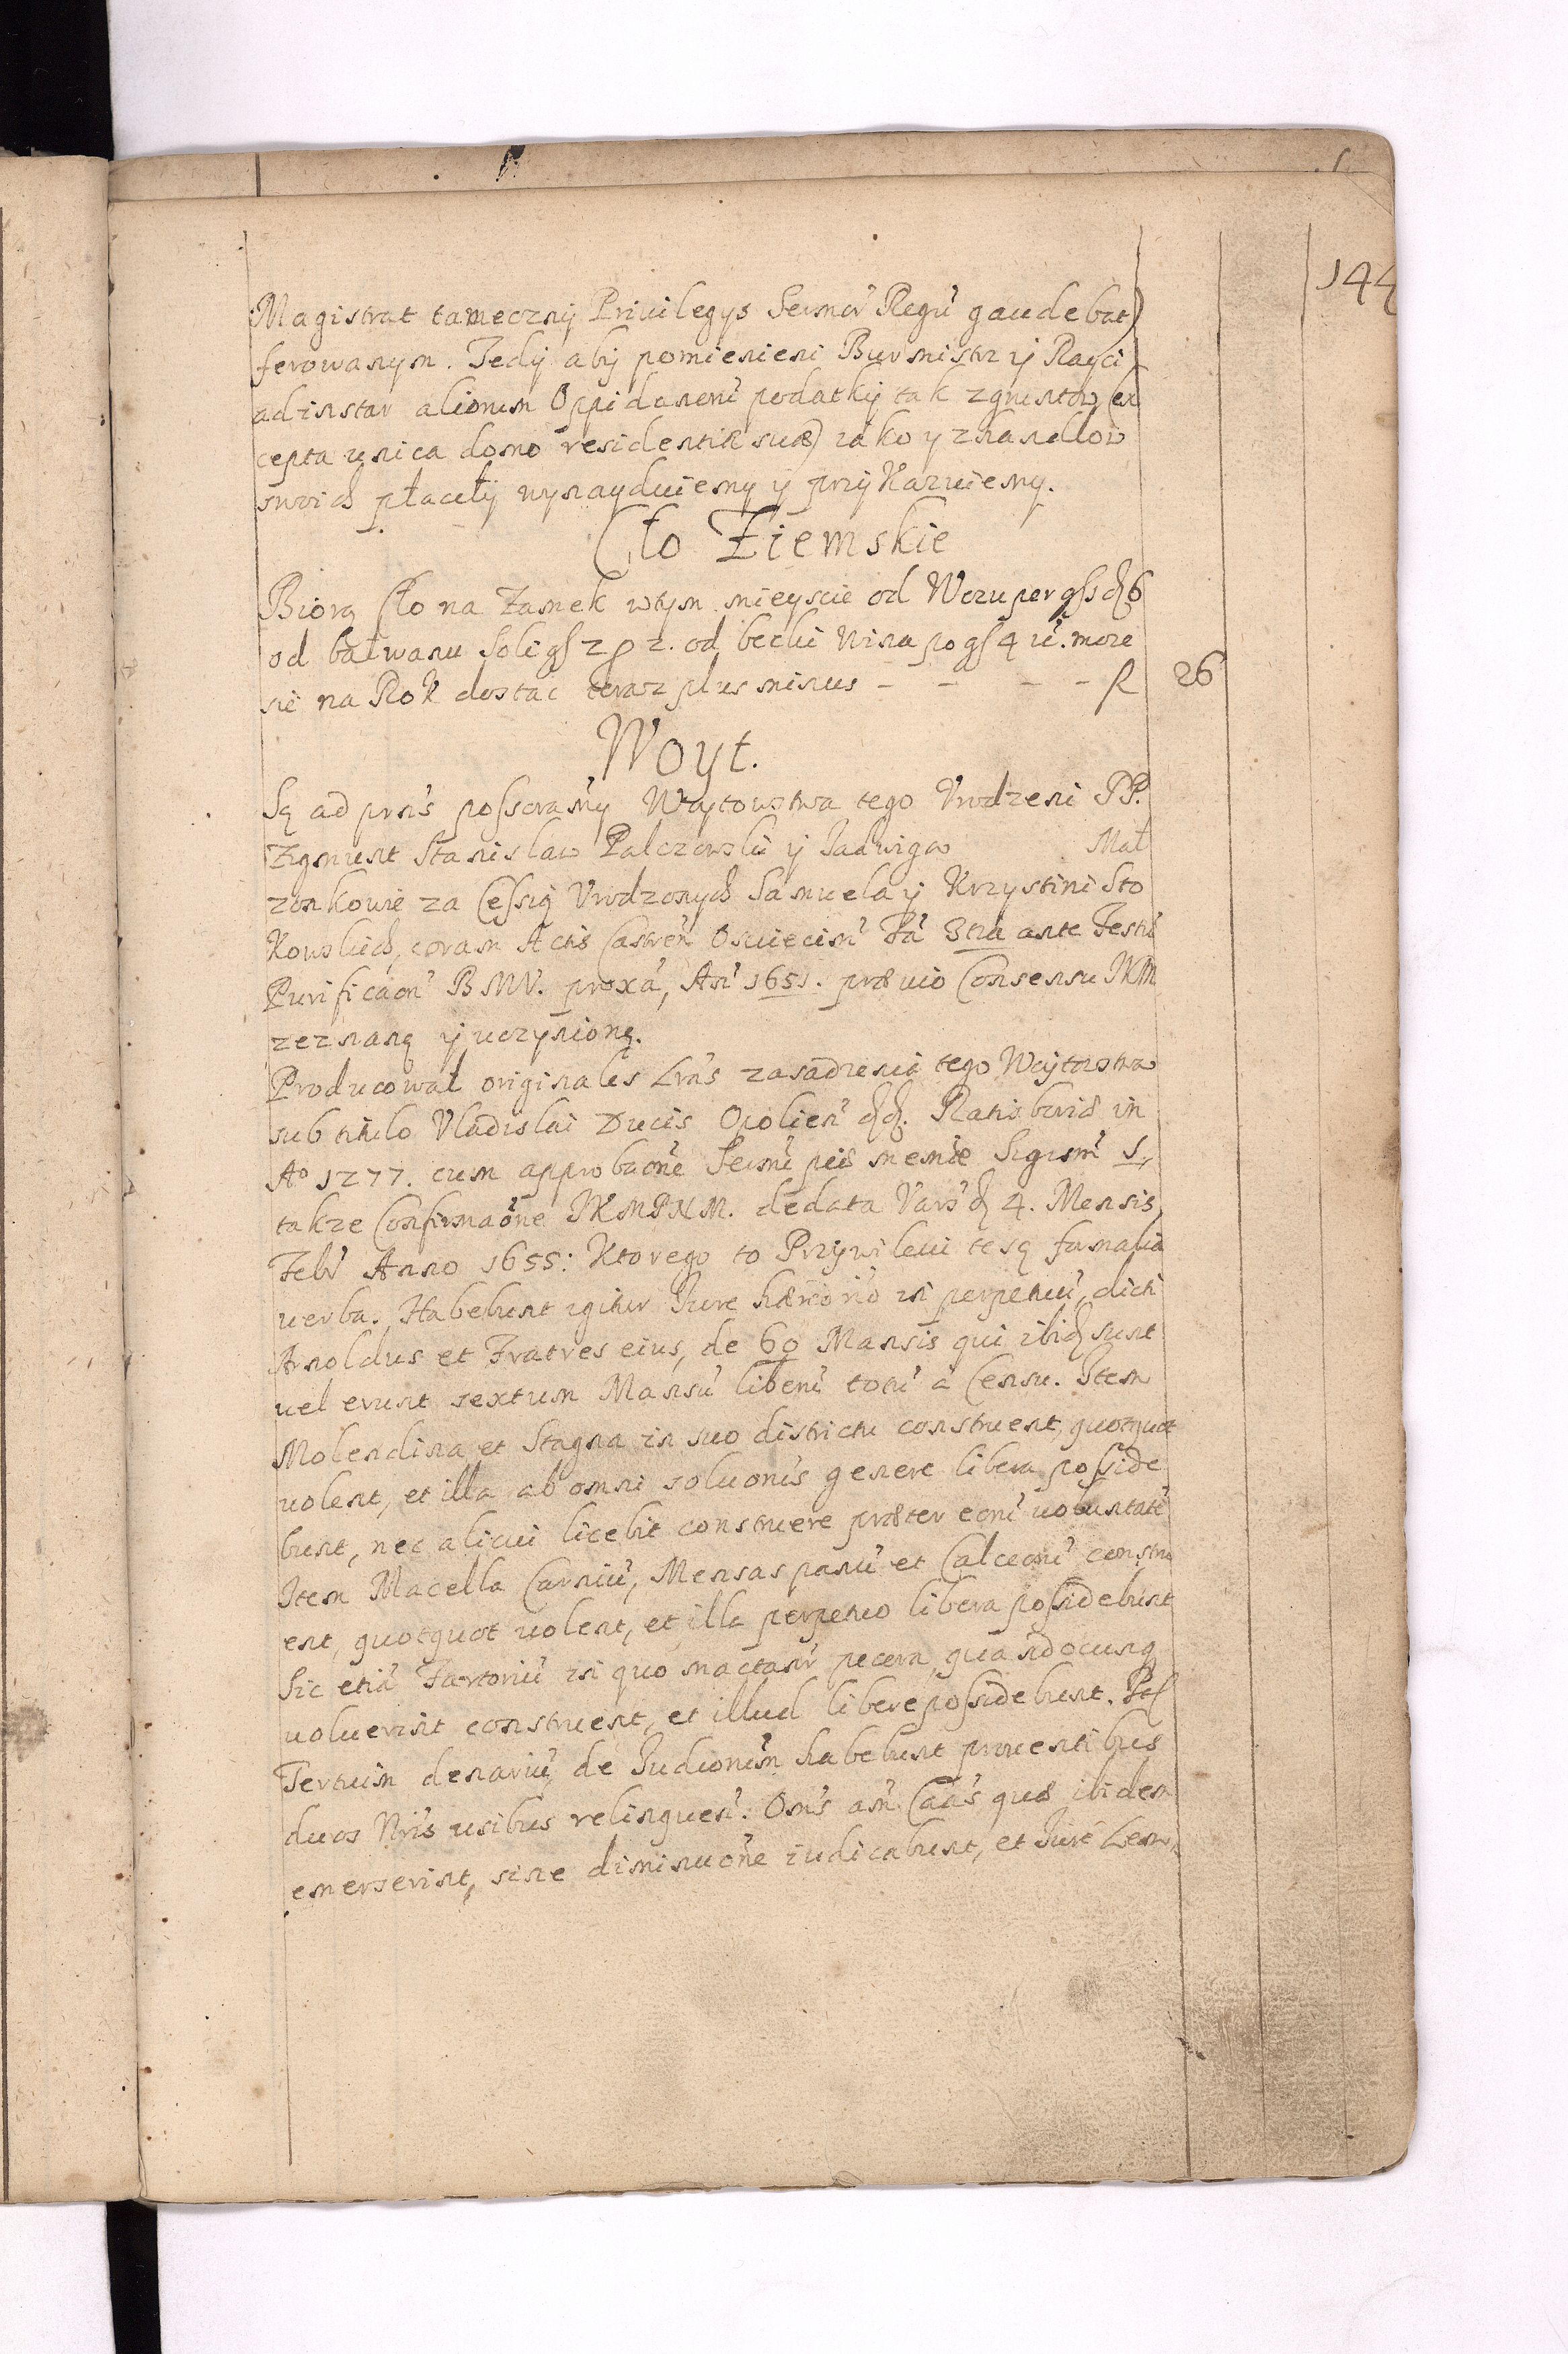 144
Magistrat tameczny Priuilegys Sermor' Regu' gaudebat)
ferowanym. Tedy aby pomienieni Burmistrz y Rayci
ad instar aliorum Oppidanoru' podatky tak zgruntow (ex
cepta unica domo residentiæ suæ) iako y zhandlow
swoich płaciły wynayduiemy y przykazuiemy.
Cło Ziemskie
Biorą cło na Zamek wtym mieyscu od
od bałwanu Soli gſ 2 ρ 2. od beczki Wina po gſ 4 u'. moze
się na Rok dostac teraz plus minus - - - - fl 26
Woyt.
Są ad prn's possorami Woytowstwa tego Vrodzeni PP.
Zigmunt Stanislaw Palczowski y Jadwiga Mał
zonkowie za Cessią Vrodzonych Samuela y Krzystini Sto
kowskich, coram Actis Castren' Osiuiecim' Fa' 3tia ante Festu'
Purificaon' BMV. proxa', An' 1651. præuio Consensu JKM
zeznaną y uczynioną.
Producował originales Lra's zasadzenia tego Woytowstwa
sub titulo Vladislai Ducis Opolien' dd. Ratiboriæ in
Aº 1277. cum approbaone' Sermi' piæ memiæ Sigism' 1,
takze Confirmaone' JKMPNM. de data Vars' d 4. Mensis
Feb' Anno 1655: Ktorego to Przywileiu te są formalia
uerba. Habebunt igitur Jure hærio'rio in perpetuu', dicti
Arnoldus et Fratres eius, de 60 Mansis qui ibid sunt
uel erunt sextum Mansu' liberu' a Censu. Item
Molendina et Stagna in suo districtu construent, quotquot
uolent, et illa ab omni soluonis genere libera posside
bunt, nec alicui licebit construere præter eoru' uoluntate'
Item Macella Carniu', Mensas panu' et Calceoru' constru
ent, quotquot uolent, et illa perpetuo libera possidebunt
Sic etia' Fartoriu' in quo mactanr' pecora, quandocunq
uoluerint construent, et illud libere possidebunt. It
Tertium denariu' de Iudiorum habebunt prouentibus
duos Nri's usibus relinquen'. Omn's am' Caa's quæ ibidem
emerserint, sine diminuone iudicabunt, et Jure